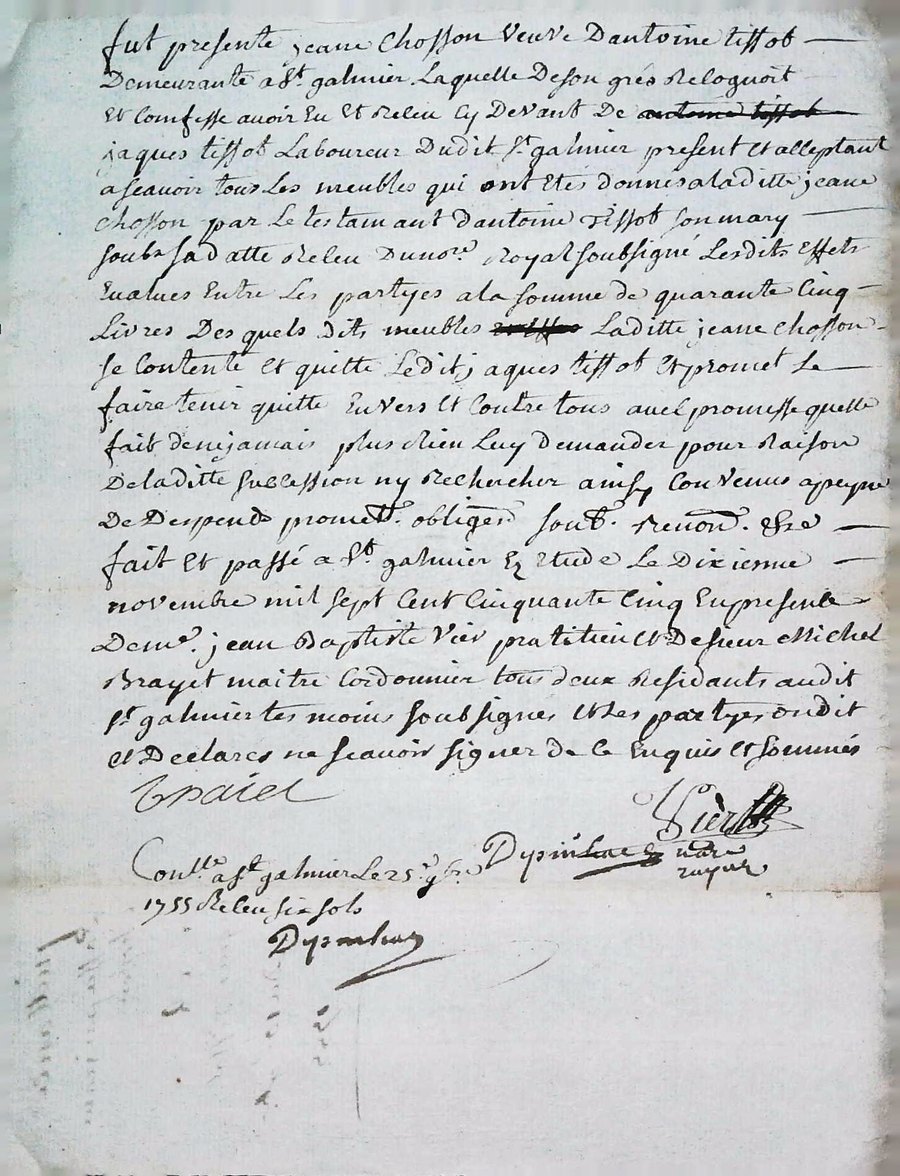 fut presente jeane Chosson veuve Dantoine tissot
Demeurante a St. galmier Laquelle De son grés Recognoit
Et Comfesse avoir Eu Et Receu Cy Devant De antoine tissot
jaques tissot Laboureur Dudit St. galmier present et acceptant
a Scavoir tous Les meubles qui ont Etes donnés a la ditte jeane
Chosson par Le testamant dantoine Tissot son mary
soubs sa datte Receu Du nore. Royal soubsigné Lesdits Effets
Evalues Entre Les partyes a la somme de quarante Cinq
Livres Des quels dits meubles Laditte jeane Chosson
se Contente et quitte Ledit jaques tissot Et promet Le
faire tenir quitte Envers Et Contre tous avec promesse quelle
fait de nejamais plus Rien Luy Demander pour Raison
De laditte succession ny Rechercher ainsy Convenus a peyne
De Despends promett. obligeans soub. Renon. &re
fait Et passé a St. galmier Ez Etude Le Dixieme
novembre mil sept Cent Cinquante Cinq En presence
De me. jean Baptiste Vier pratitien et De sieur Michel
Brayet maitre Cordonnier tous deux Residants audit
St. galmier tesmoins soubsignes Et Les partyes ondit
et Declarés ne scavoir signer de Ce Enquis et sommés
Vier
Conlle. a St. galmier Le 25e. 9bre
nore
royal
1755 Receu six sols